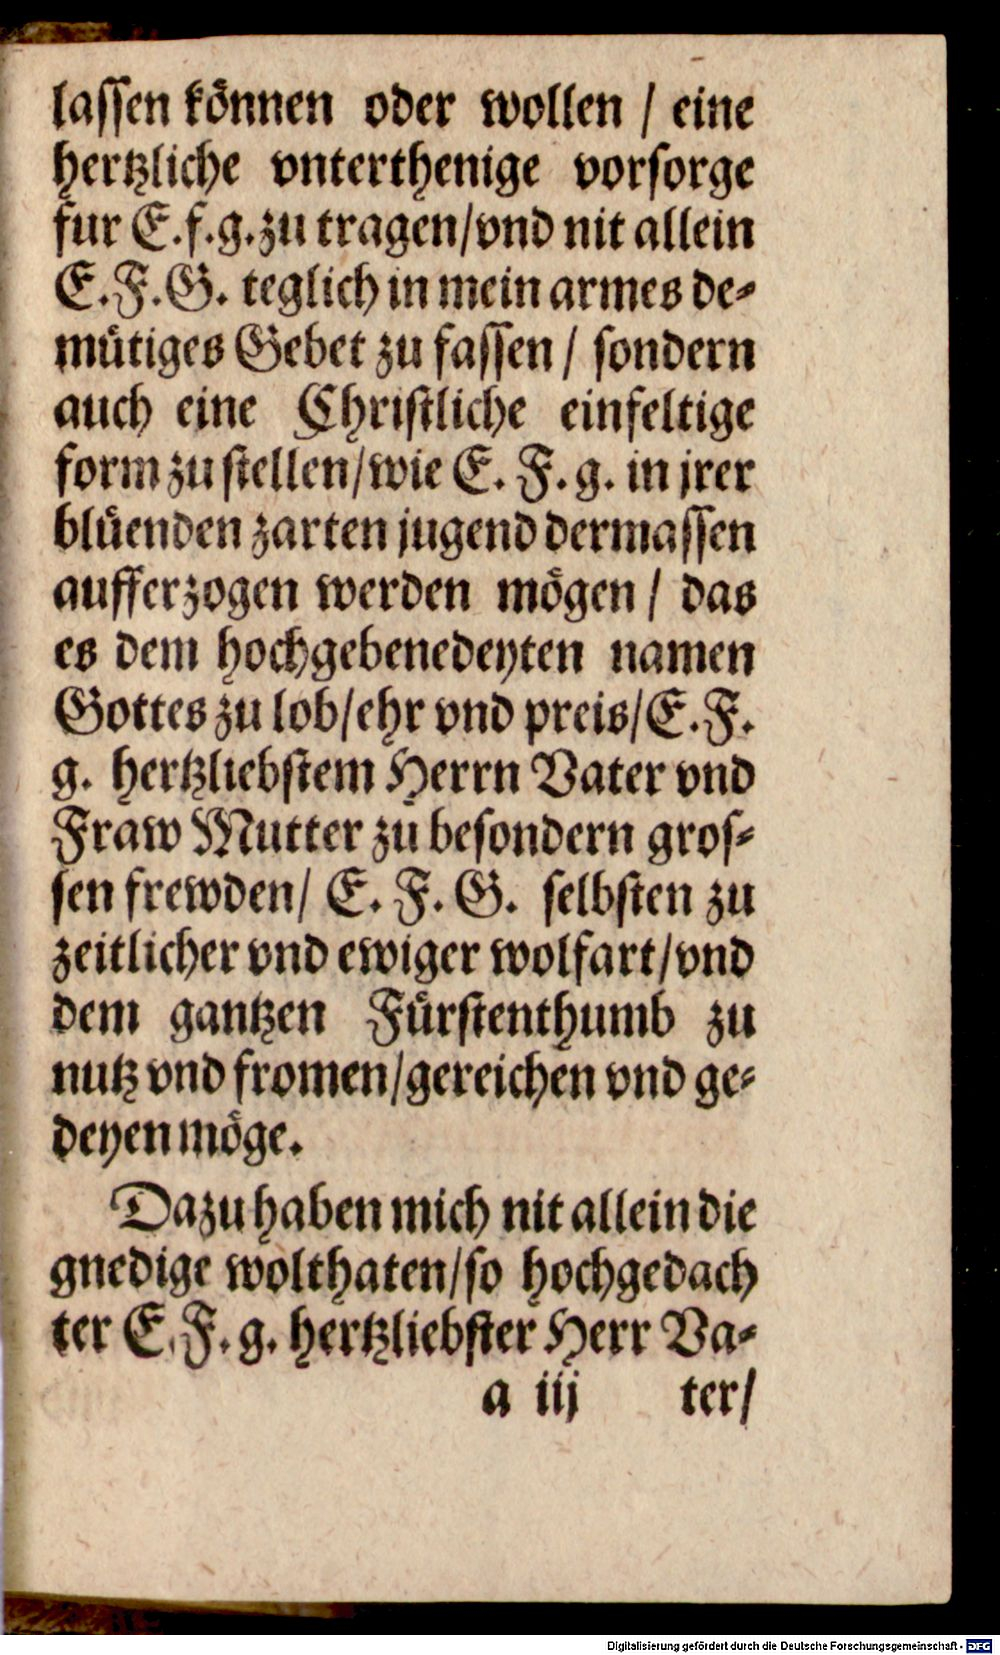 lassen können oder wollen / eine
hertzliche vnterthenige vorsorge
fur E.f.g. zu tragen/vnd nit allein
E.F.G. teglich in mein armes de-
mütiges Gebet zu fassen / sondern
auch eine Christliche einfeltige
form zu stellen/wie E. F. g. in jrer
blüenden zarten jugend dermassen
aufferzogen werden mögen / das
es dem hochgebenedeyten namen
Gottes zu lob/ehr vnd preis/E.F.
g. hertzliebstem Herrn Vater vnd
Fraw Mutter zu besondern gros-
sen frewden/ E. F. G. selbsten zu
zeitlicher vnd ewiger wolfart/vnd
dem gantzen Fürstenthumb zu
nutz vnd fromen/gereichen vnd ge-
deyen möge.
Dazu haben mich nit allein die
gnedige wolthaten/so hochgedach
ter E.F.g. hertzliebster Herr Va-
a iij ter/
Digitalisierung gefördert durch die Deutsche Forschungsgemeinschaft - DFG